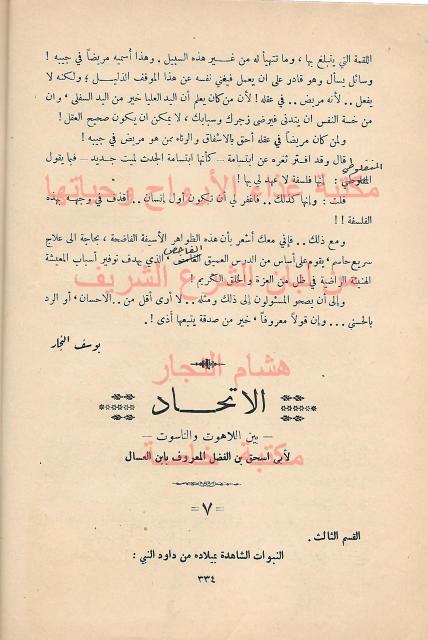 اللقمة التي يتبلغ بها، وما تتهيأ له من غير هذه السبيل. وهذا أسميه مريضاً في جيبه !
وسائل يسأل وهو قادر على ان يعمل فيغني نفسه عن هذا الموقف الذليل؛ ولكنه لا
يفعل.. لأنه مريض.. في عقله ! لأن من كان يعلم أن اليد العليا خير من اليد السفلى، وان
من خسة النفس ان يتدنى فيرضى زجرك وسبابك، لا يمكن ان يكون صحيح العقل !
ولمن كان مريضاً في عقله أحق بالاشفاق والرثاء ممن هو مريض في جيبه !
قال وقد افتر ثغره عن ابتسامة – كأنها ابتسامة الحدث لميت جديد – فيما يقول
المنفلوطي
: إنها فلسفة لا عهد لي بها !
قلت : وإنها كذلك.. فاغفر لي أن تكون أول إنسان.. أقذف في وجهه بهذه
الفلسفة !!
ومع ذلك.. فإني معك أشعر بأن هذه الظواهر الأسيفة الفاضحة، بحاجة الى علاج
سريع حاسم، يقوم على أساس من الدرس العميق الفاحص، الذي يهدف لتوفير أسباب المعيشة
الهنيئة الراضية في ظل من العزة والخلق الكريم !
وإلى أن يصحو المسئولون إلى ذلك ومثله.. لا أرى أقل من.. الاحسان، أو الرد
بالحسنى.. وإن قولاً معروفاً، خير من صدقة يتبعها أذى !.
يوسف النجار
مكتبة غذاء الأرواح وحياتها
من ابان الشرع الشريف
هشام النجار
مكتبة خاصة
الاتحاد
– بين اللاهوت والناسوت –
لأبي اسحق بن الفضل المعروف بابن العسال
– ٧ –
القسم الثالث.
النبوات الشاهدة بميلاده من داود النبي :
٣٣٤